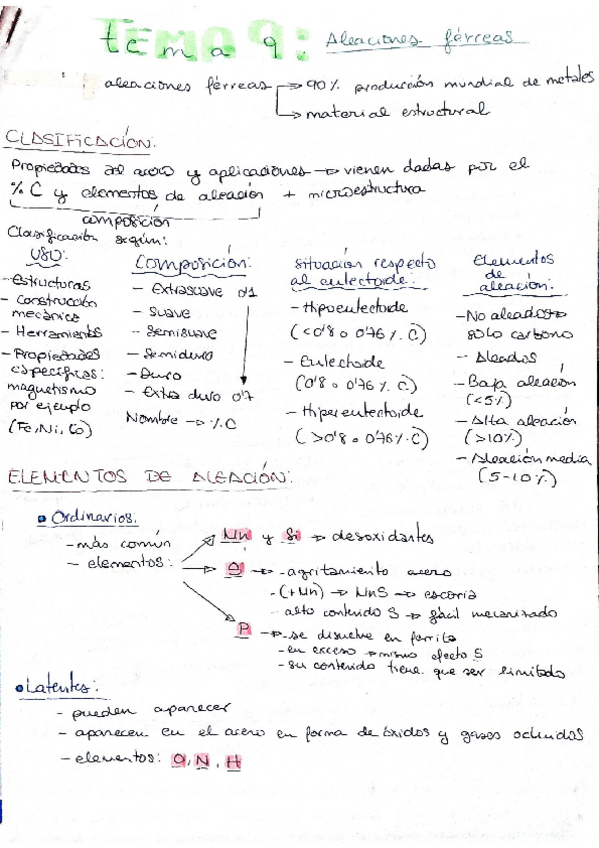 tema 9: Aleaciones férreas
aleaciones férreas → 90% producción mundial de metales
→ material estructural
CLASIFICACIÓN:
Propiedades del acero y aplicaciones → vienen dadas por el
% C y elementos de aleación + microestructura
composición
Clasificación según:
USO:
- Estructuras
- Construcción
mecánica
- Herramientas
- Propiedades
específicas:
magnetismo
por ejemplo
(Fe, Ni, Co)
Composición:
- Extrasuave 0'1
- Suave
- Semisuave
- Semiduro
- Duro
- Extra duro 0'7
Nombre → % C
situación respecto
al eutectoide:
- Hipoeutectoide
(<0'8 o 0'76 % C)
- Eutectoide
(0'8 o 0'76 % C)
- Hipereutectoide
(>0'8 o 0'76 % C)
Elementos
de
aleación:
- No aleados →
solo carbono
- Aleados
- Baja aleación
(<5%)
- Alta aleación
(>10%)
- Aleación media
(5-10%)
ELEMENTOS DE ALEACIÓN:
Ordinarios:
- más común
- elementos:
Mn y Si → desoxidantes
S → - agrietamiento acero
- (+Mn) → MnS → escoria
- alto contenido S → fácil mecanizado
P → - se disuelve en ferrita
- en exceso → mismo efecto S
- su contenido tiene que ser limitado
Latentes:
- pueden aparecer
- aparecen en el acero en forma de óxidos y gases ocluidos
- elementos: O, N, H